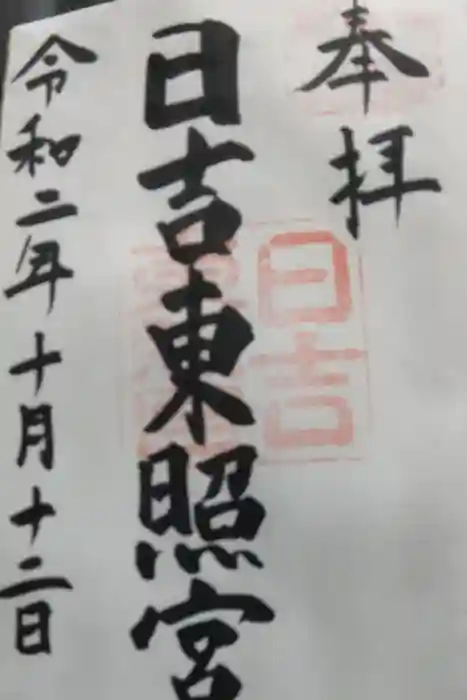 奉拝
日吉東照宮
令和二年十月十二日
日吉